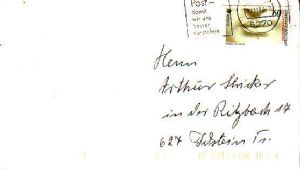 Post-
damit
wir uns
besser
verstehen
6270
60
Herrn
Arthur Stricker
in der Ritzbach 17
627 Idstein Ts.